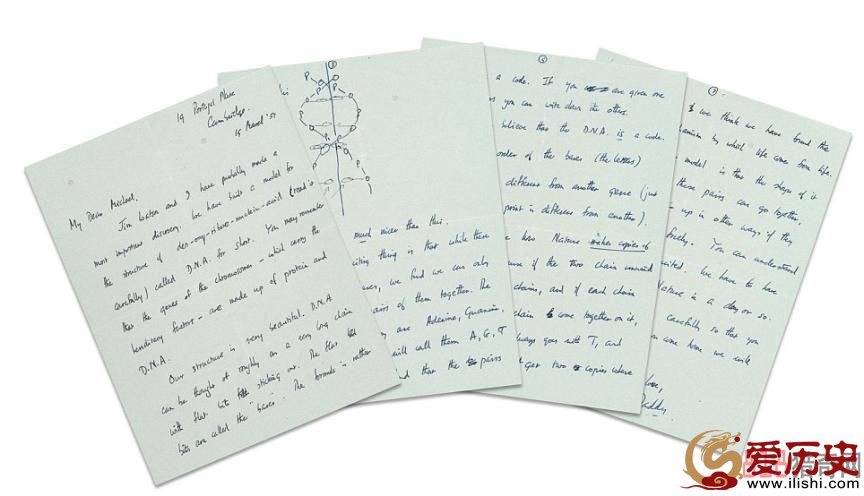 19 Portugal Place
Cambridge.
19 March '53
My Dear Michael,
Jim Watson and I have probably made a
most important discovery. We have built a model for
the structure of des-oxy-ribose-nucleic-acid (read it
carefully) called D.N.A. for short. You may remember
that the genes of the chromosomes - which carry the
hereditary factors - are made up of protein and
D.N.A.
Our structure is very beautiful. D.N.A.
can be thought of roughly as a very long chain
with flat bits sticking out. The flat
bits are called the "bases". The formula is rather
P
P
P
P
P
P
much nicer than this.
citing thing is that while there
we find we can only
pairs of them together. The
are Adenine, Guanine,
will call them A, G, T
that the pairs
a code. If you are given one
you can write down the others.
believe that the D.N.A. is a code.
order of the bases (the letters)
different from another gene (just
print is different from another).
how Nature makes copies of
if the two chains unwind
chains, and if each chain
chain come together on it,
always goes with T, and
get two copies where
we think we have found the
mechanism by which life comes from life.
model is that the shape of it
these pairs can go together,
up in other ways if they
freely. You can understand
excited. We have to have
Nature in a day or so.
carefully so that you
come home we will
love,
Daddy
爱历史
www.ilishi.com